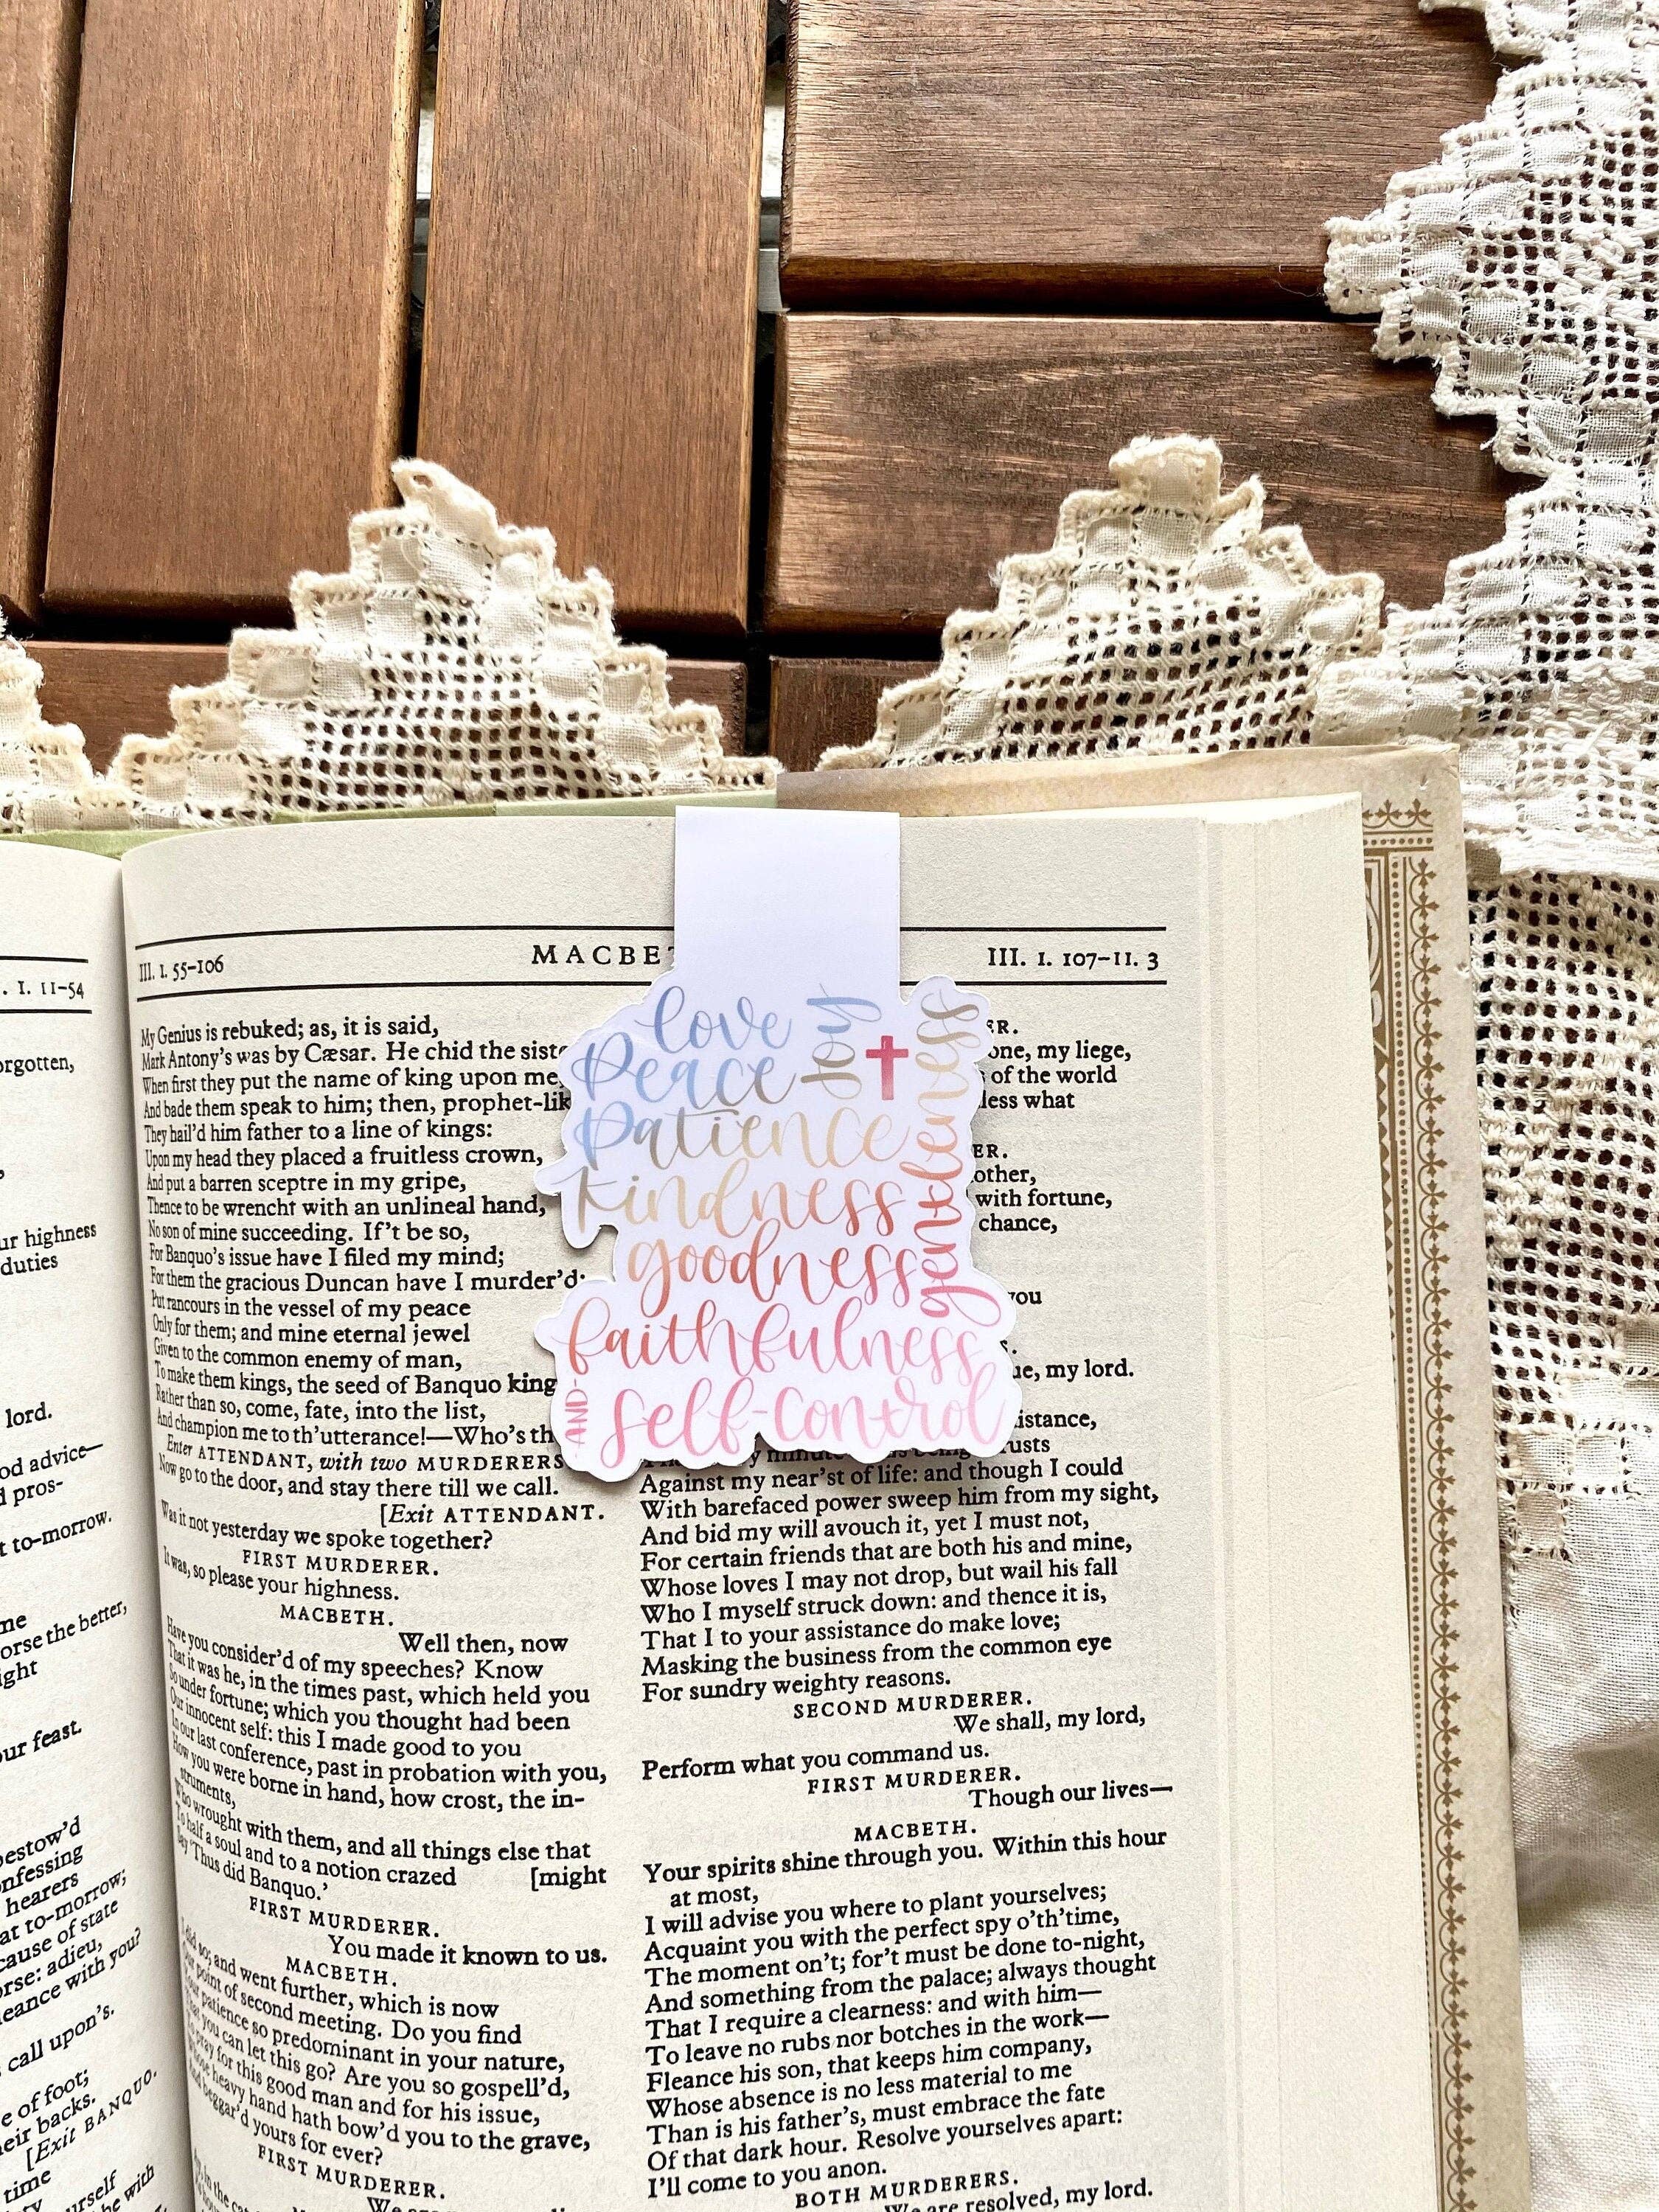 . I. 11-54
orgotten,
ur highness
duties
lord.
od advice—
d pros-
t to-morrow.
me
orse the better,
ight
ur feast.
estow'd
nfessing
hearers
at to-morrow;
cause of state
orse: adieu,
eance with you?
call upon's.
e of foot;
eir backs.
[Exit BANQUO.
time
urself
be with
III. I. 55-106
MACBET
III. I. 107-II. 3
My Genius is rebuked; as, it is said,
Mark Antony's was by Cæsar. He chid the siste
When first they put the name of king upon me,
And bade them speak to him; then, prophet-lik
They hail'd him father to a line of kings:
Upon my head they placed a fruitless crown,
And put a barren sceptre in my gripe,
Thence to be wrencht with an unlineal hand,
No son of mine succeeding. If't be so,
For Banquo's issue have I filed my mind;
For them the gracious Duncan have I murder'd;
Put rancours in the vessel of my peace
Only for them; and mine eternal jewel
Given to the common enemy of man,
To make them kings, the seed of Banquo king
Rather than so, come, fate, into the list,
And champion me to th'utterance!—Who's th
Enter ATTENDANT, with two MURDERERS
Now go to the door, and stay there till we call.
[Exit ATTENDANT.
Was it not yesterday we spoke together?
FIRST MURDERER.
It was, so please your highness.
MACBETH.
Well then, now
Have you consider'd of my speeches? Know
That it was he, in the times past, which held you
So under fortune; which you thought had been
Our innocent self: this I made good to you
In our last conference, past in probation with you,
How you were borne in hand, how crost, the in-
struments,
Who wrought with them, and all things else that
To half a soul and to a notion crazed [might
Say 'Thus did Banquo.'
FIRST MURDERER.
You made it known to us.
MACBETH.
I did so; and went further, which is now
Our point of second meeting. Do you find
Your patience so predominant in your nature,
That you can let this go? Are you so gospell'd,
To pray for this good man and for his issue,
Whose heavy hand hath bow'd you to the grave,
And beggar'd yours for ever?
FIRST MURDERER.
love
joy
Peace
Patience
Kindness
goodness
gentleness
faithfulness
AND
self-control
ER.
one, my liege,
of the world
less what
ER.
other,
with fortune,
chance,
you
ue, my lord.
istance,
rusts
Against my near'st of life: and though I could
With barefaced power sweep him from my sight,
And bid my will avouch it, yet I must not,
For certain friends that are both his and mine,
Whose loves I may not drop, but wail his fall
Who I myself struck down: and thence it is,
That I to your assistance do make love;
Masking the business from the common eye
For sundry weighty reasons.
SECOND MURDERER.
We shall, my lord,
Perform what you command us.
FIRST MURDERER.
Though our lives—
MACBETH.
Your spirits shine through you. Within this hour
at most,
I will advise you where to plant yourselves;
Acquaint you with the perfect spy o'th'time,
The moment on't; for't must be done to-night,
And something from the palace; always thought
That I require a clearness: and with him—
To leave no rubs nor botches in the work—
Fleance his son, that keeps him company,
Whose absence is no less material to me
Than is his father's, must embrace the fate
Of that dark hour. Resolve yourselves apart:
I'll come to you anon.
BOTH MURDERERS.
We are resolved, my lord.